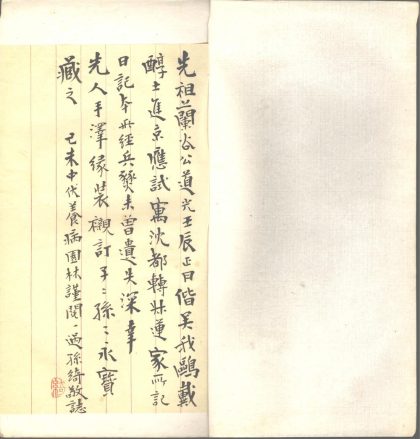 先祖蘭谷公道光壬辰正月偕吴我鷗戴
醇士進京應試寓沈都轉莊蓮家所記
日記本所經兵燹未曾遺失深幸
先人手澤緣裝襯訂子〻孫〻永寶
藏之 己未中伏養病園林謹閱一過孫綺敬誌